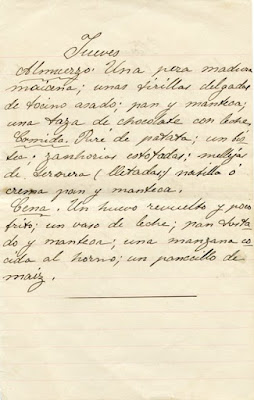 Jueves
Almuerzo. Una pera madura
maicena; unas tirillas delgadas
de tocino asado; pan y manteca;
una taza de chocolate con leche.
Comida. Puré de patata; un bis
tec; zanhorias estofadas; mollejas
de ternera (lletadas) natilla ó
crema pan y manteca.
Cena. Un huevo revuelto y poco
frito; un vaso de leche; pan tosta
do y manteca; una manzana co
cida al horno; un panecillo de
maiz.